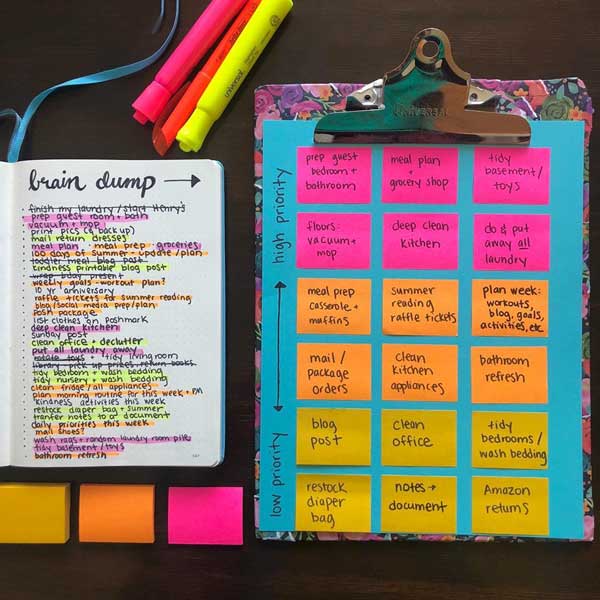 universal
UNIVERSAL
brain dump →
finish my laundry / start Henry's
prep guest room + bath
vacuum + mop
print pics (& back up)
mail return dresses
meal plan · meal prep · groceries
100 days of summer - update / plan
toddler meal blog post
kindness printable blog post
wrap bday present
weekly goals - workout plan?
10 yr anniversary
raffle tickets for summer reading
blog/social media prep/plan
posh package
list clothes on poshmark
deep clean kitchen
sunday post
clean office + declutter
put all laundry away
rotate toys + tidy living room
library pick up prizes, return books
tidy bedroom + wash bedding
tidy nursery + wash bedding
clean fridge / all appliances
plan morning routine for this week + PM
kindness activities this week
restock diaper bag + summer
tranfer notes to or document
daily priorities this week
mail shoes?
wash rags + random laundry room pile
tidy basement / toys
bathroom refresh
high priority
low priority
prep guest
bedroom +
bathroom
meal plan
+
grocery shop
tidy
basement/
toys
floors:
vacuum +
mop
deep clean
kitchen
do & put
away all
laundry
meal prep
casserole +
muffins
summer
reading
raffle tickets
plan week:
workouts,
blog, goals,
activities, etc
mail /
package
orders
clean
kitchen
appliances
bathroom
refresh
blog
post
clean
office
tidy
bedrooms /
wash bedding
restock
diaper
bag
notes →
document
Amazon
returns